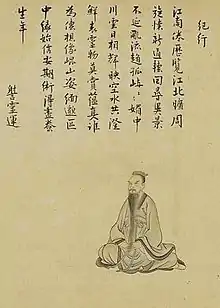 紀行
江南倦歷覽江北曠周
旋懷新道轉迴尋異景
不延亂流趨孤嶼〻媚中
川雲日相輝映空水共澄
鮮表靈物莫賞蘊真誰
為傳想像崐山姿緬邈區
中緣始信安期術得盡養
生年
謝靈運